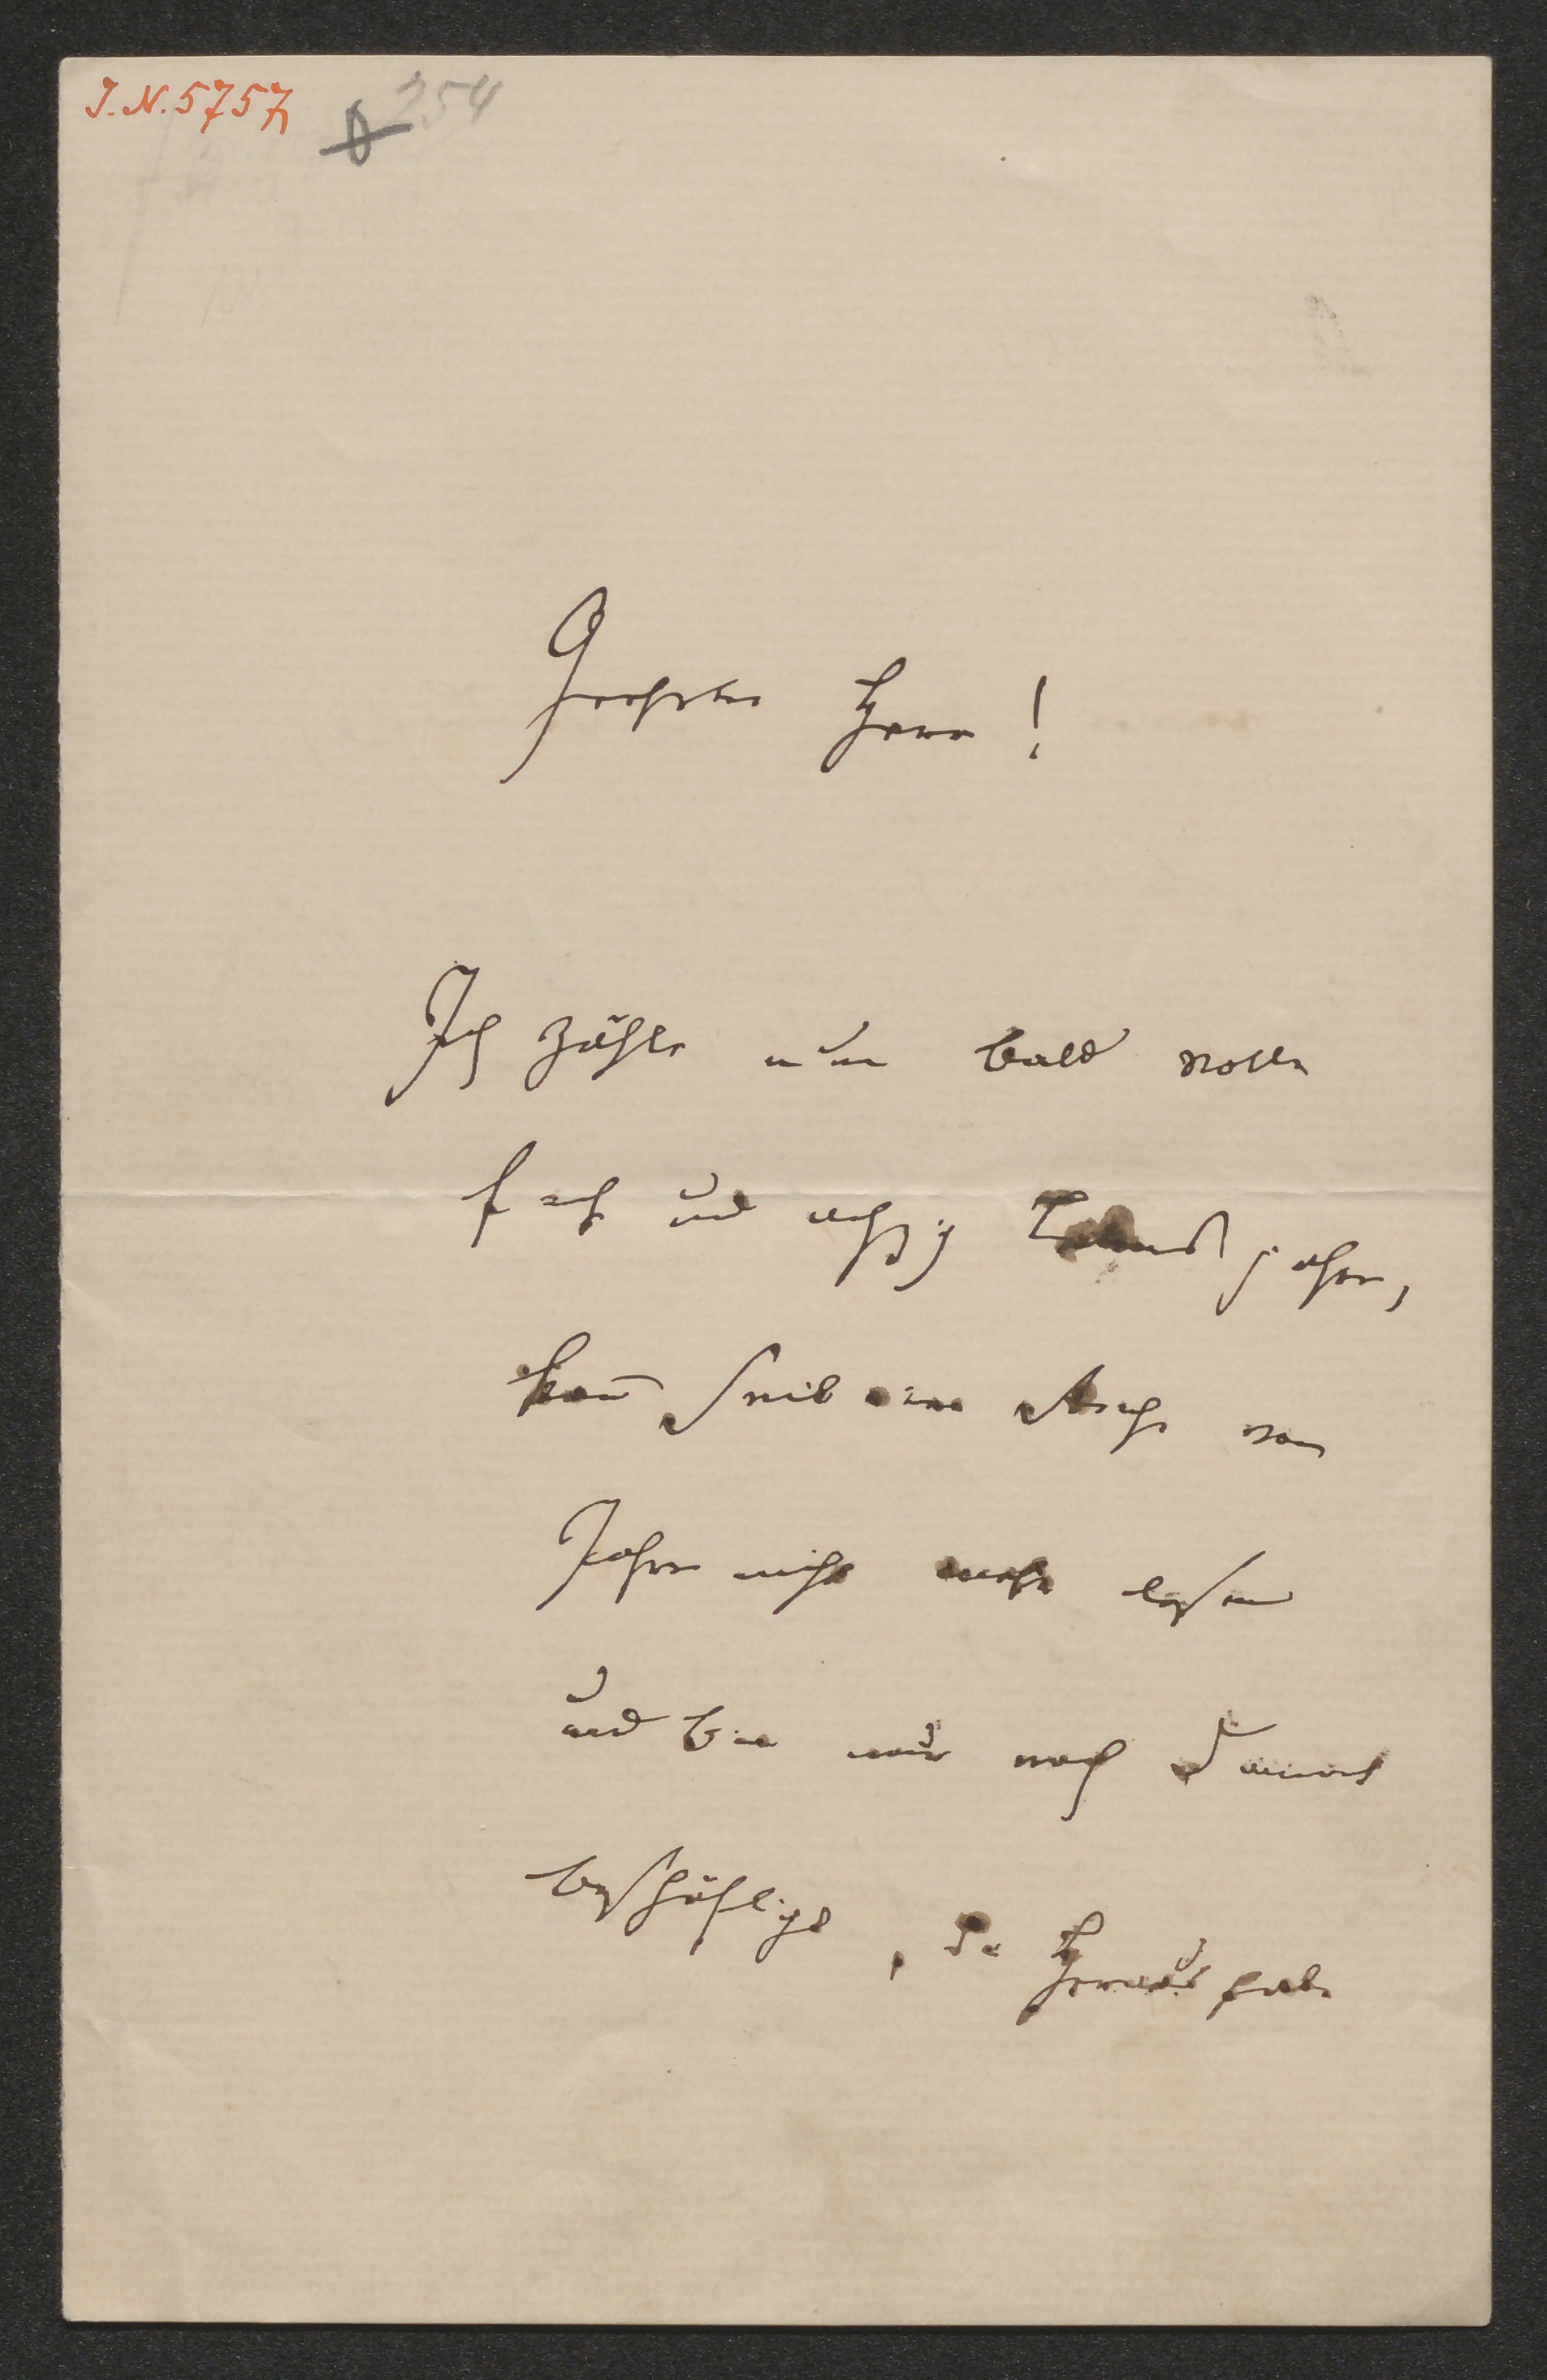 J. N. 5757
254
Geehrter Herr!
Ich zähle nun bald volle
und achtzig Lebensjahre,
kann seit einer Reihe von
Jahren nicht mehr lesen
und bin nur noch damit
beschäftigt, die Herausgabe